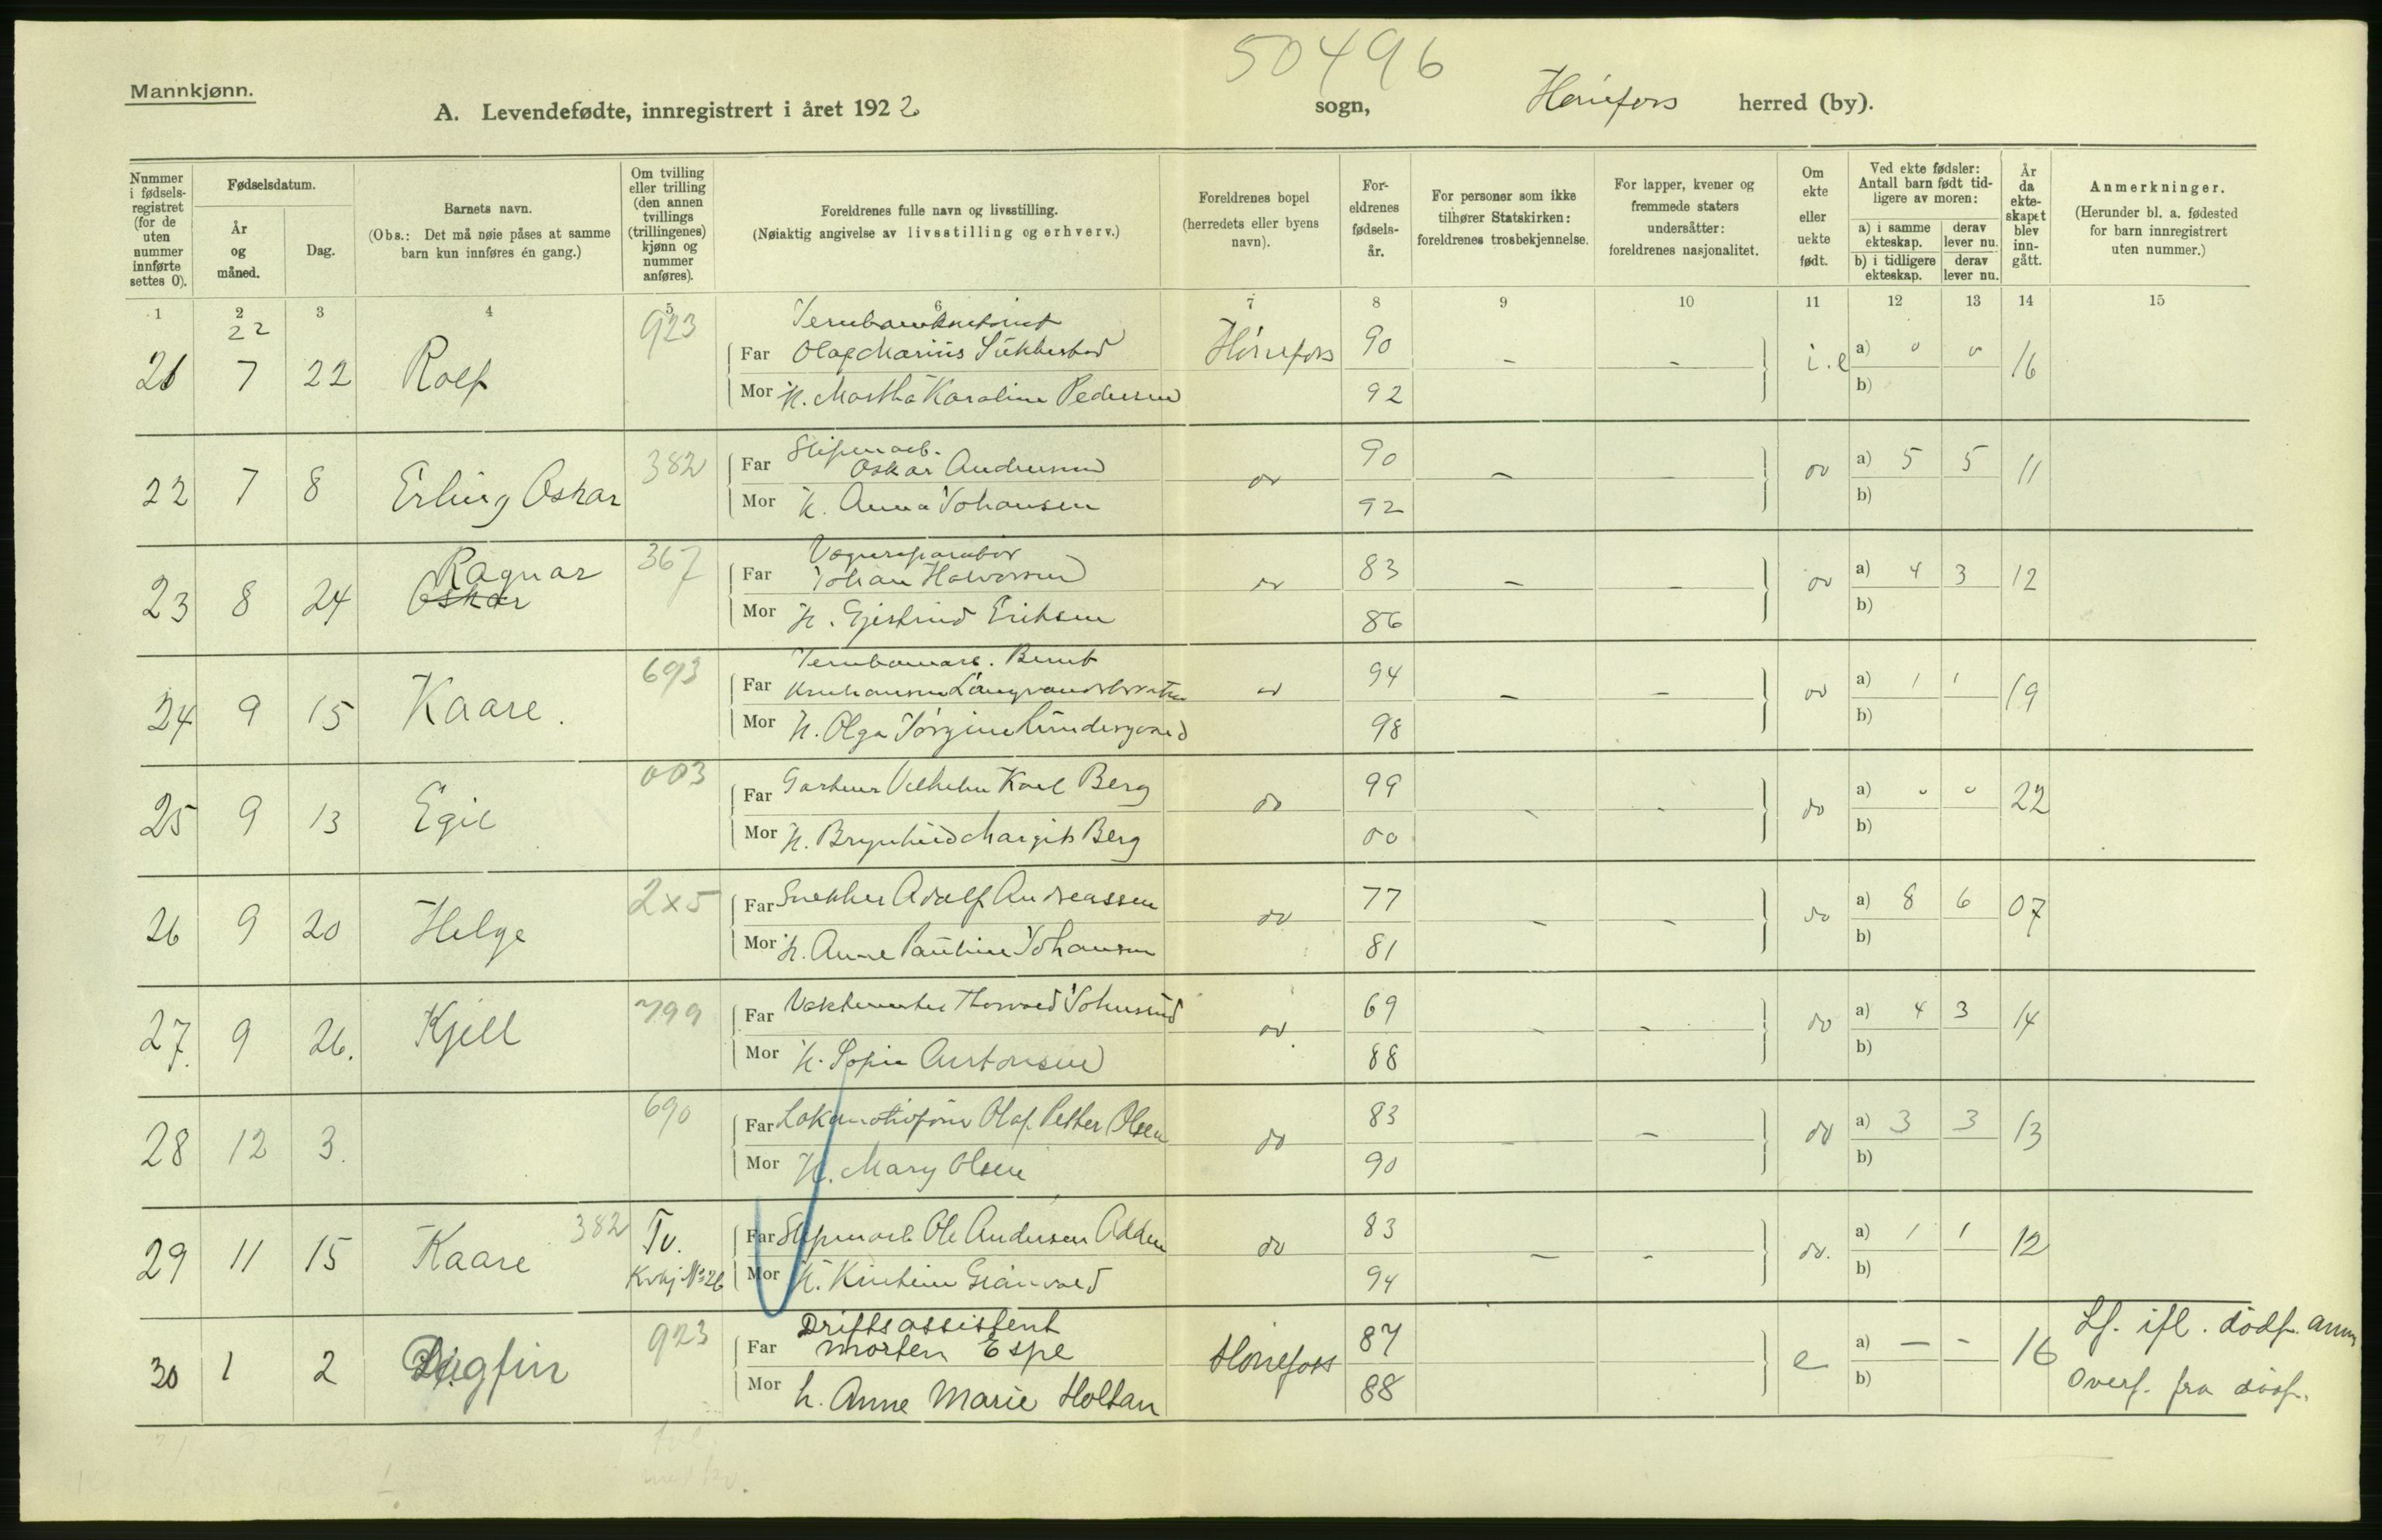 50496
Mannkjønn.
A. Levendefødte, innregistrert i året 1922
sogn, Hønefoss herred (by).
Nummer i fødsels-registret (for de uten nummer innførte settes 0).
Fødselsdatum.
År og måned.
Dag.
Barnets navn.
(Obs.: Det må nøie påses at samme barn kun innføres én gang.)
Om tvilling eller trilling (den annen tvillings (trillingenes) kjønn og nummer anføres).
Foreldrenes fulle navn og livsstilling.
(Nøiaktig angivelse av livsstilling og erhverv.)
Foreldrenes bopel (herredets eller byens navn).
For-eldrenes fødsels-år.
For personer som ikke tilhører Statskirken: foreldrenes trosbekjennelse.
For lapper, kvener og fremmede staters undersåtter: foreldrenes nasjonalitet.
Om ekte eller uekte født.
Ved ekte fødsler: Antall barn født tid-ligere av moren:
a) i samme ekteskap.
derav lever nu.
b) i tidligere ekteskap.
derav lever nu.
År da ekte-skapet blev inn-gått.
Anmerkninger.
(Herunder bl. a. fødested for barn innregistrert uten nummer.)
1 2 3 4 5 6 7 8 9 10 11 12 13 14 15
22
21 7 22 Rolf 923
Far Olaf Marius
Mor H. Martha Karoline Pedersen
Hønefoss 90 92 - - i.e a) 0 0 b) 16
22 7 8 Erling Oskar 382
Far Sliperiarb. Oskar Andersen
Mor H. Anna Johansen
do 90 92 - - do a) 5 5 b) 11
23 8 24 Ragnar Oskar 367
Far Vognreparatør Johan Halvorsen
Mor H. Gjertrud Eriksen
do 83 86 - - do a) 4 3 b) 12
24 9 15 Kaare. 693
Far Jernbanearb. Bernt
Mor H. Olga Jørgine
do 94 98 - - do a) 1 1 b) 19
25 9 13 Egil 003
Far Gartner Vilhelm Karl Berg
Mor H. Brynhild Margit Berg
do 99 00 - - do a) 0 0 b) 22
26 9 20 Helge 2x5
Far Snekker Adolf Andreassen
Mor H. Anne Pauline Johansen
do 77 81 - - do a) 8 6 b) 07
27. 9 26. Kjell 799
Far Vaktmester Thorvald Johnsrud
Mor H. Sofie
do 69 88 - - do a) 4 3 b) 14
28 12 3. 690
Far Lokomotivfører Olaf Petter Olsen
Mor H. Mary Olsen
do 83 90 - - do a) 3 3 b) 13
29 11 15 Kaare 382 Tv. Kvkj No 26
Far Sliperiarb Ole Andersen
Mor H. Kristine
do 83 94 - - do. a) 1 1 b) 12
30 1 2 Dagfin 923
Far Driftsassistent Morten Espe
Mor h. Anne Marie Holtan
Hønefoss 87 88 e a) - - b) 16
Lf. ifl. dødf. anm
Overf. fra dødf.